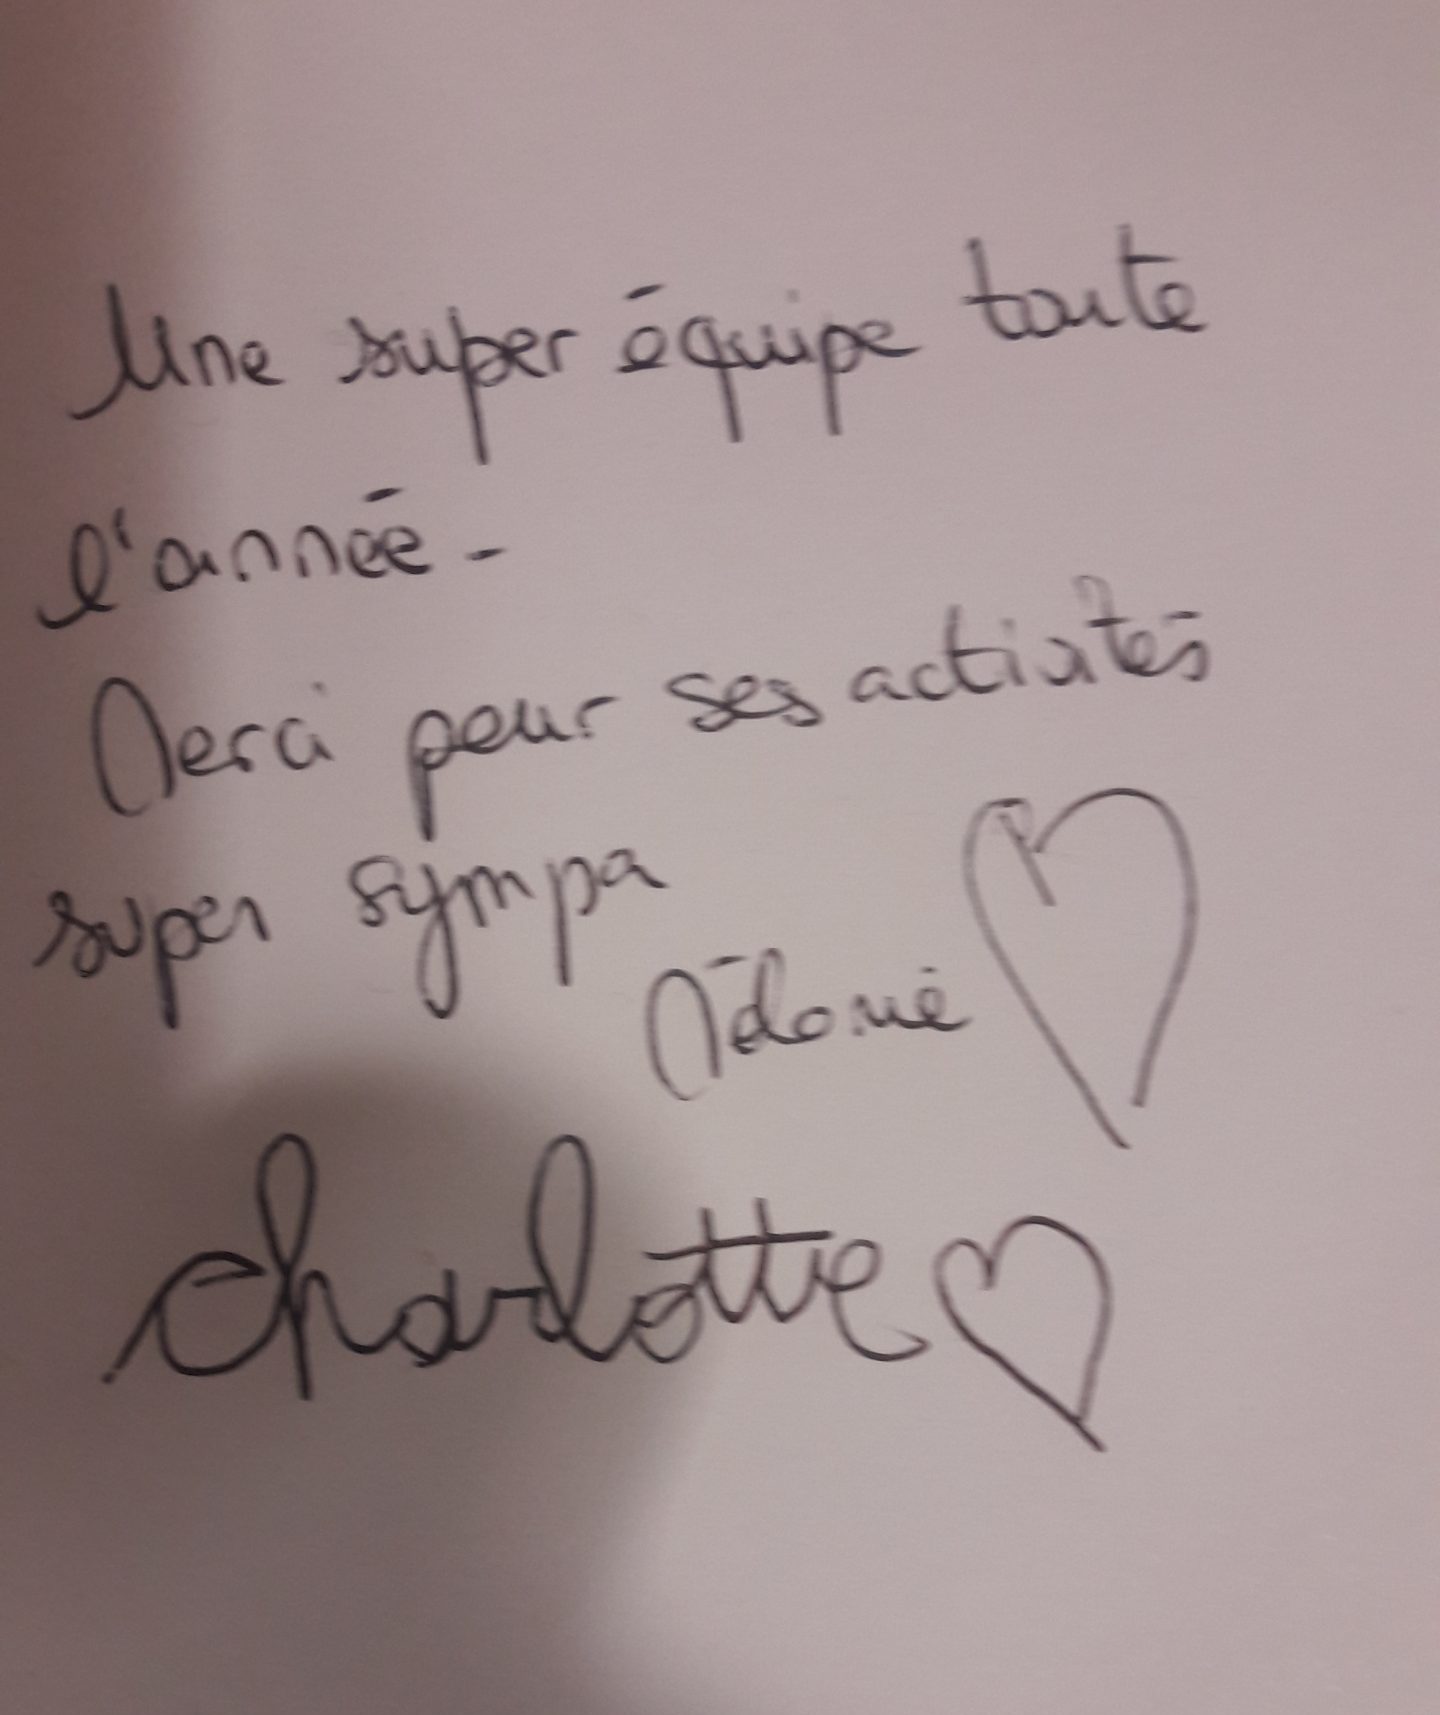 Une super équipe toute
l'année -
Merci pour ses activités
super sympa
Mélanie
Charlotte